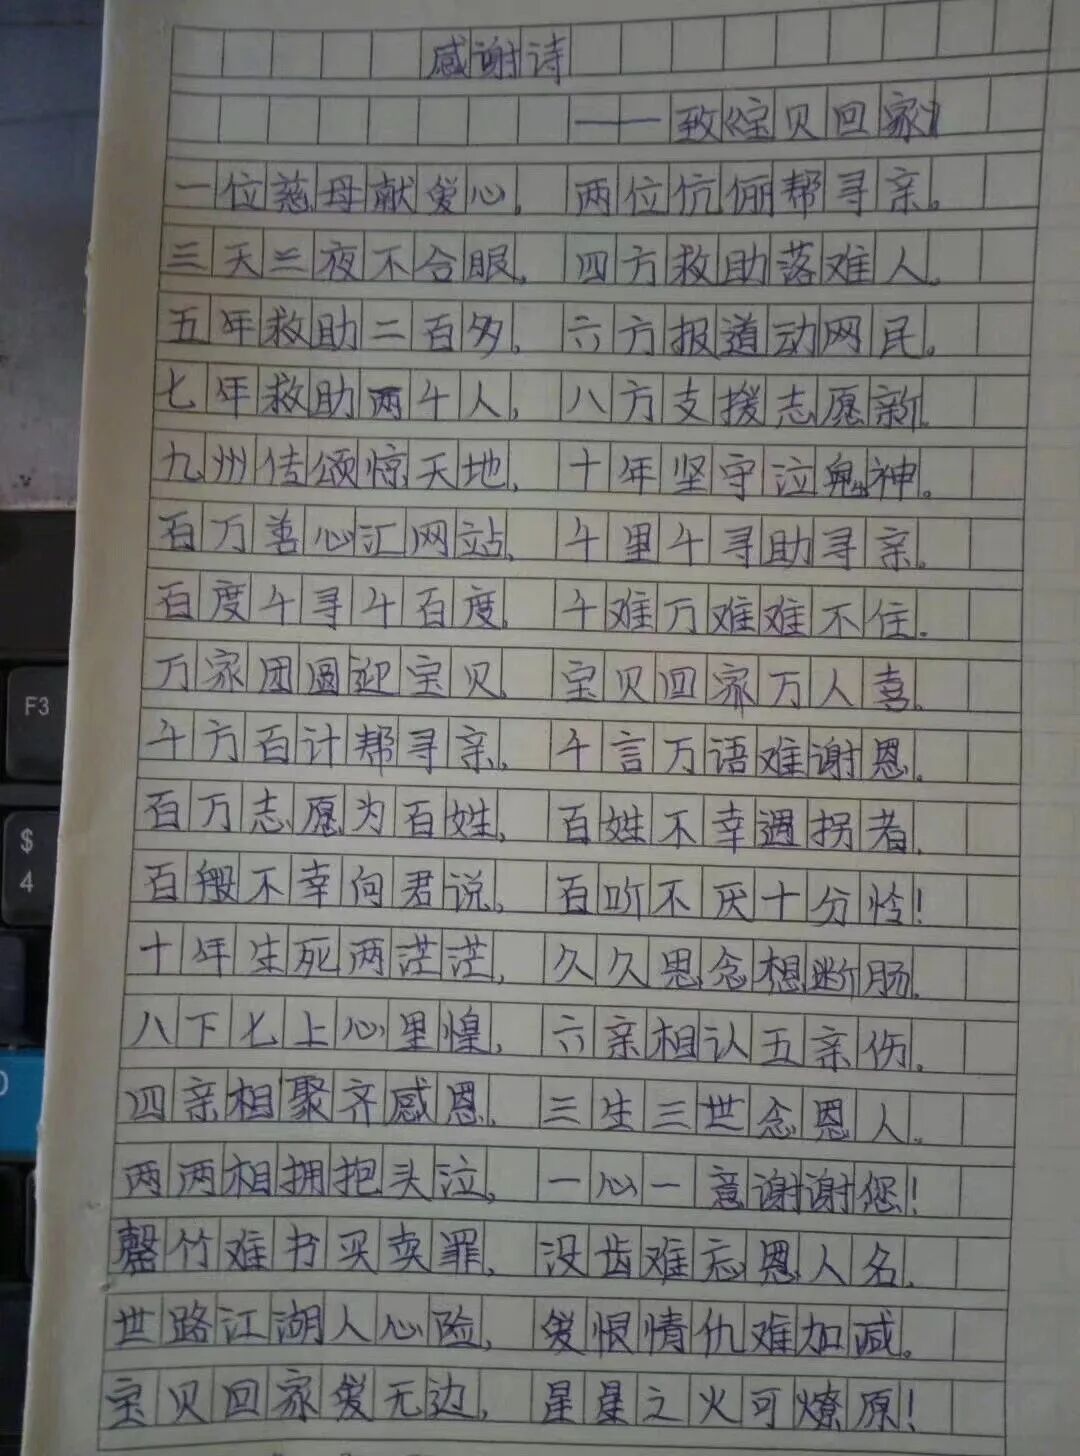 感谢诗
——致《宝贝回家》
一位慈母献爱心，两位伉俪帮寻亲。
三天三夜不合眼，四方救助落难人。
五年救助二百多，六方报道动网民。
七年救助两千人，八方支援志愿新。
九州传颂惊天地，十年坚守泣鬼神。
百万善心汇网站，千里千寻助寻亲。
百度千寻千百度，千难万难难不住。
万家团圆迎宝贝，宝贝回家万人喜。
千方百计帮寻亲，千言万语难谢恩。
百万志愿为百姓，百姓不幸遇拐者。
百般不幸向君说，百听不厌十分怜！
十年生死两茫茫，久久思念想断肠。
八下七上心里惶，六亲相认五亲伤。
四亲相聚齐感恩，三生三世念恩人。
两两相拥抱头泣，一心一意谢谢您！
罄竹难书买卖罪，没齿难忘恩人名。
世路江湖人心险，爱恨情仇难加减。
宝贝回家爱无边，星星之火可燎原！
F3
$
4